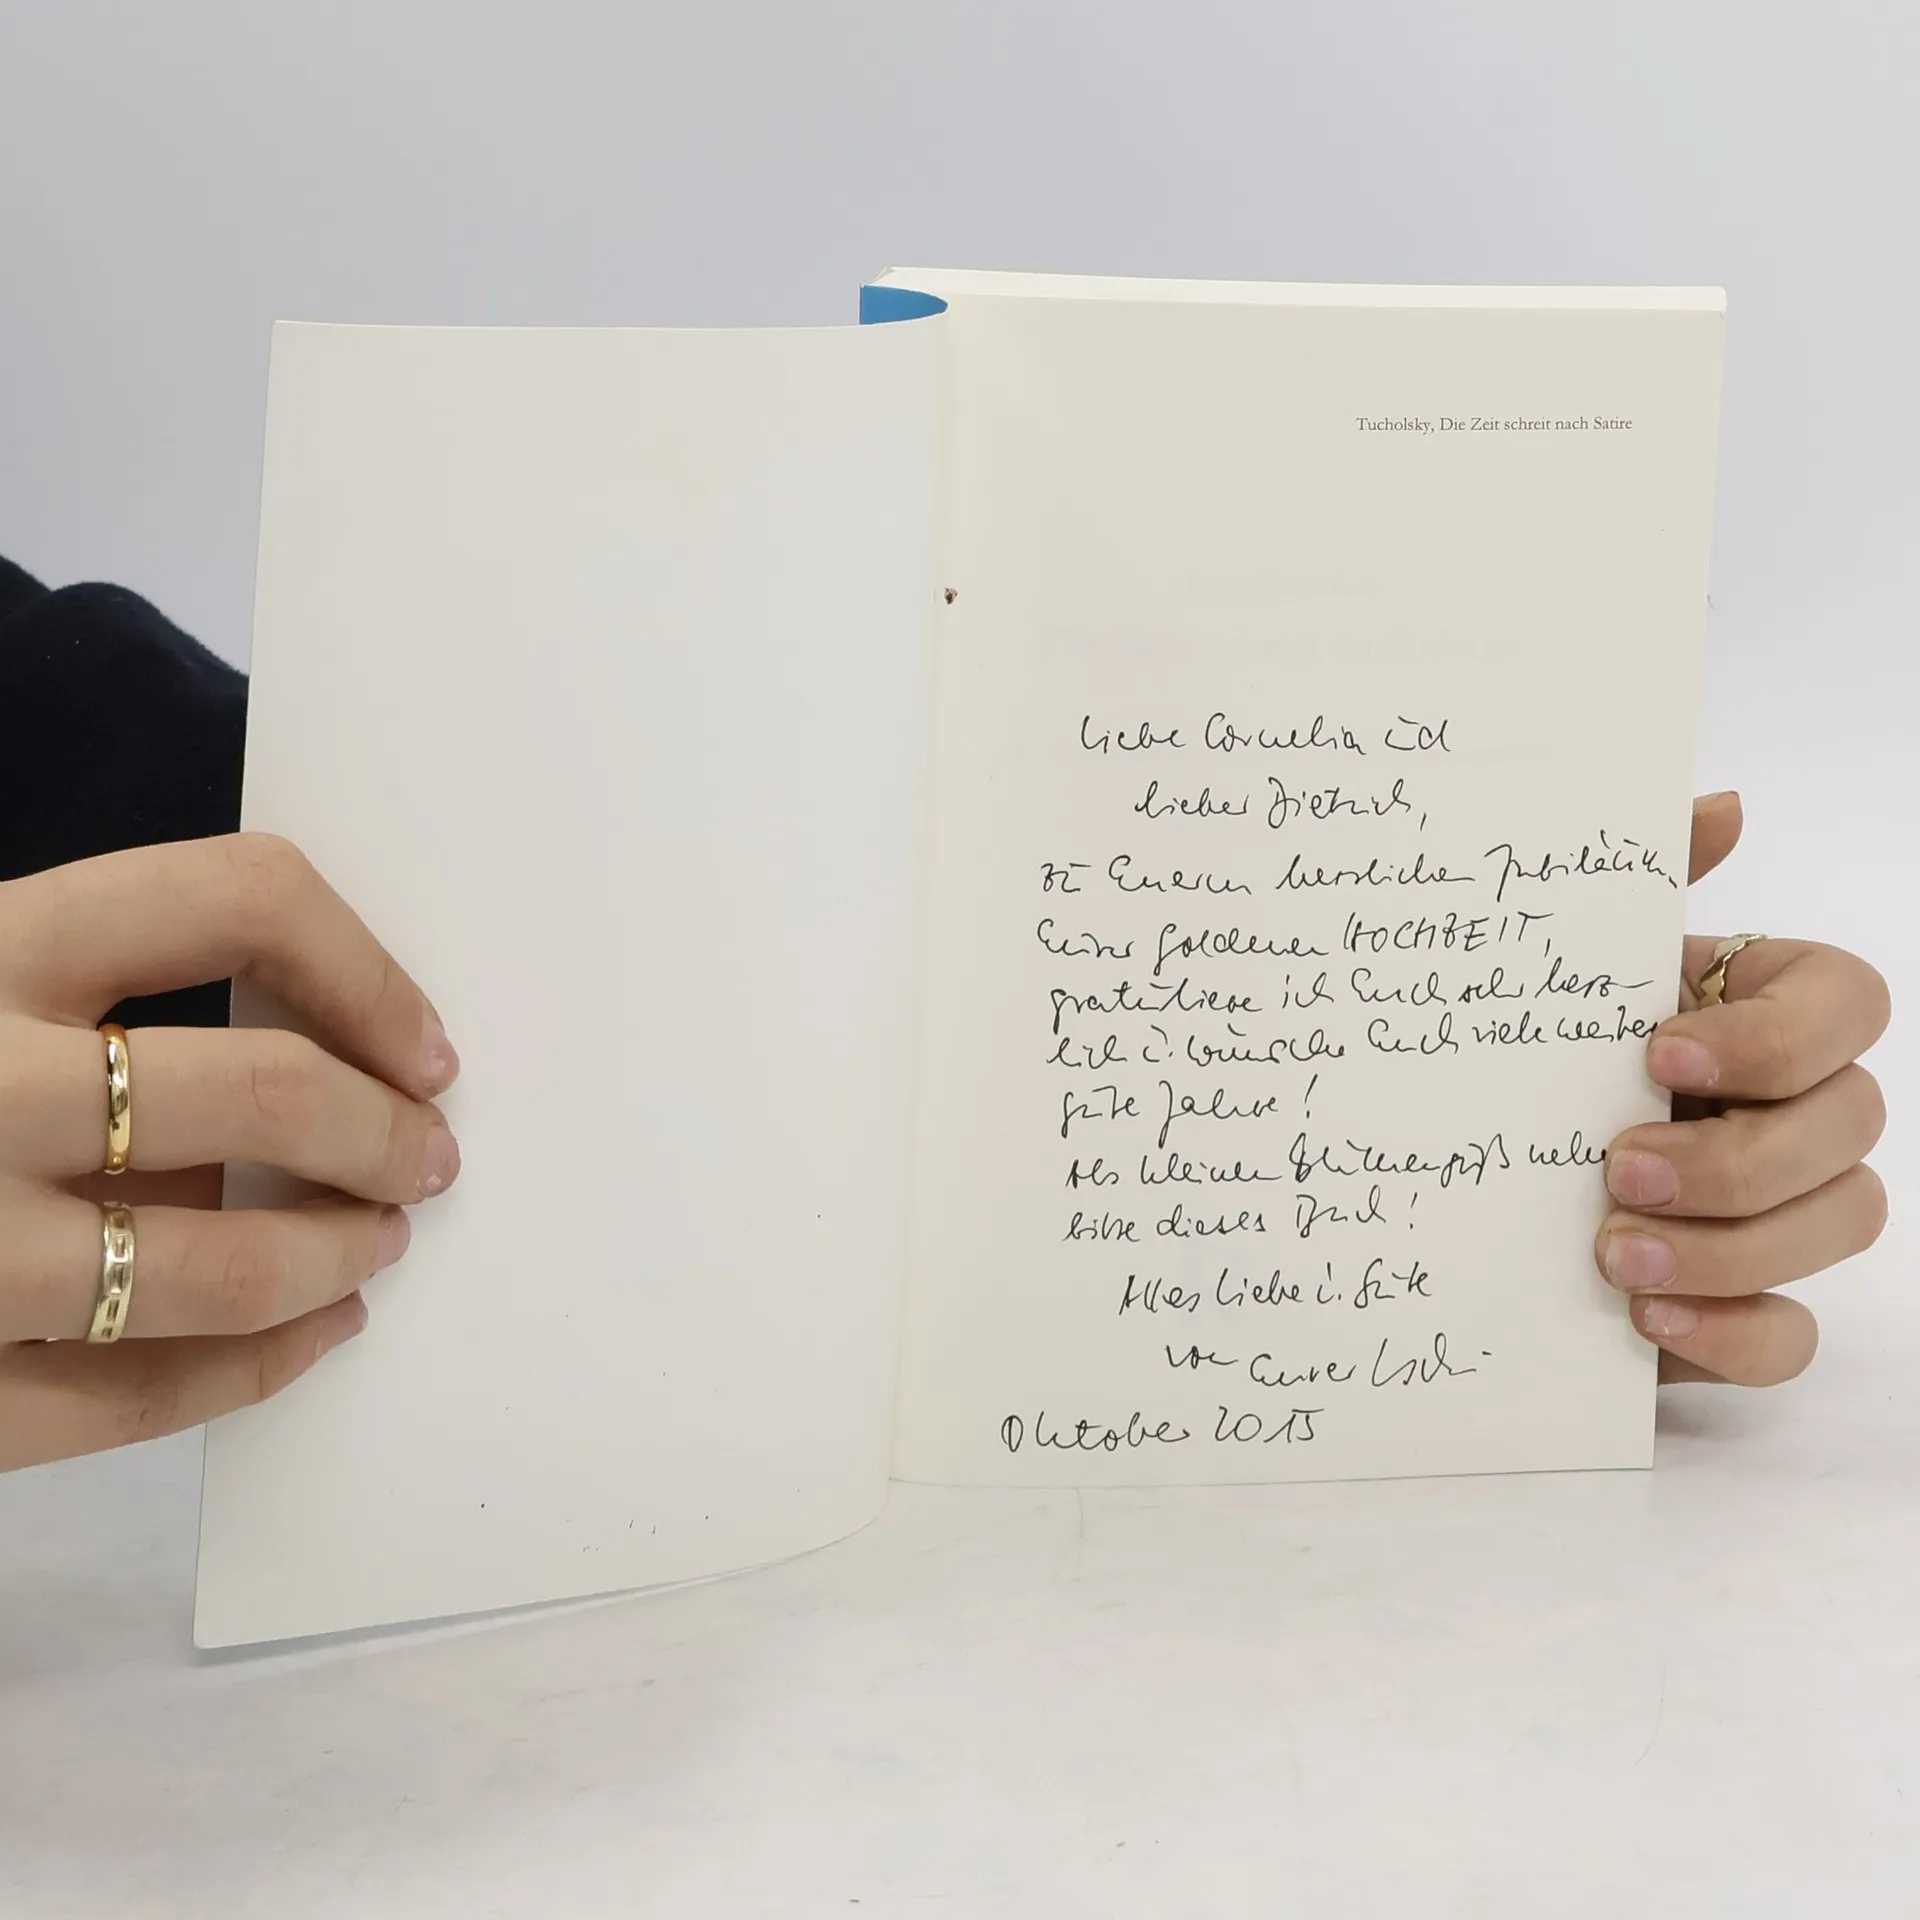 Tucholsky, Die Zeit schreit nach Satire
Liebe Cornelia und
lieber Dietrich,
zu Eurem herrlichen Jubiläum,
Eurer goldenen HOCHZEIT,
gratuliere ich Euch sehr herz-
lich u. wünsche Euch viele weitere
gute Jahre!
Als kleinen Blumengruß
bitte dieses Buch!
Alles Liebe u. Gute
von Eurer
Oktober 2015